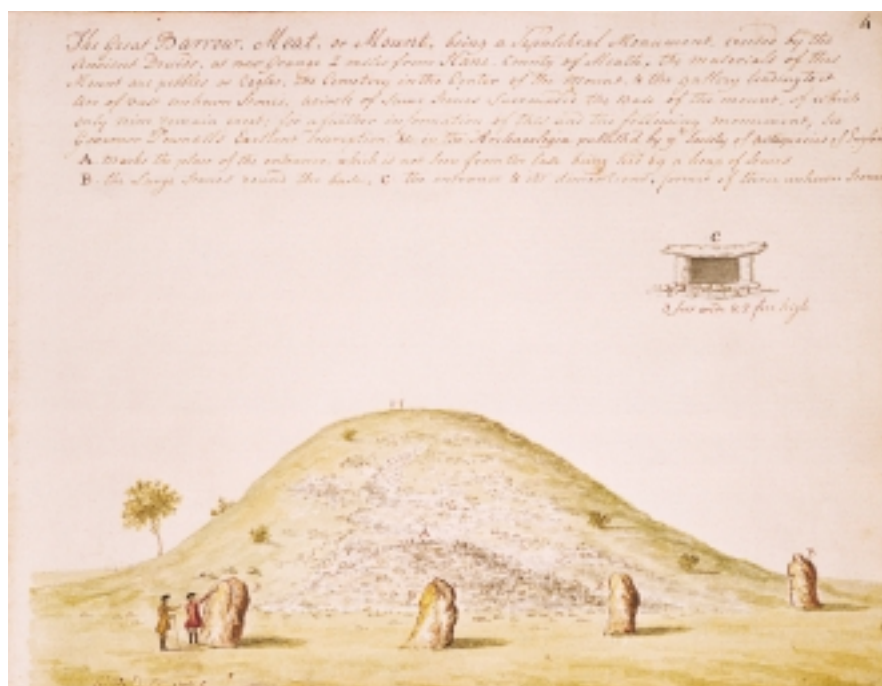 4
The Great Barrow, Moat, or Mount, being a Sepulchral Monument, erected by the
Ancient Druids, at new Grange 2 miles from Slane. County of Meath, the materials of this
Mount are pebbles or Cogles, the Cemetery in the Center of the Mount, & the Gallery leading to it
are of vast unhewn Stones, a circle of Stones Surrounded the base of the mount, of which
only nine remain erect; for a further information of this and the following monument, see
Governor Pownall's Excellent description, &c in the Archaeologia published by ye Society of Antiquaries of
A marks the place of the entrance, which is not seen from the base being hid by a heap of Stones
B the Large Stones round the base, C the entrance & its dimentions, formed of three unhewn Stones
C
3 feet wide & 2 feet high
A
B